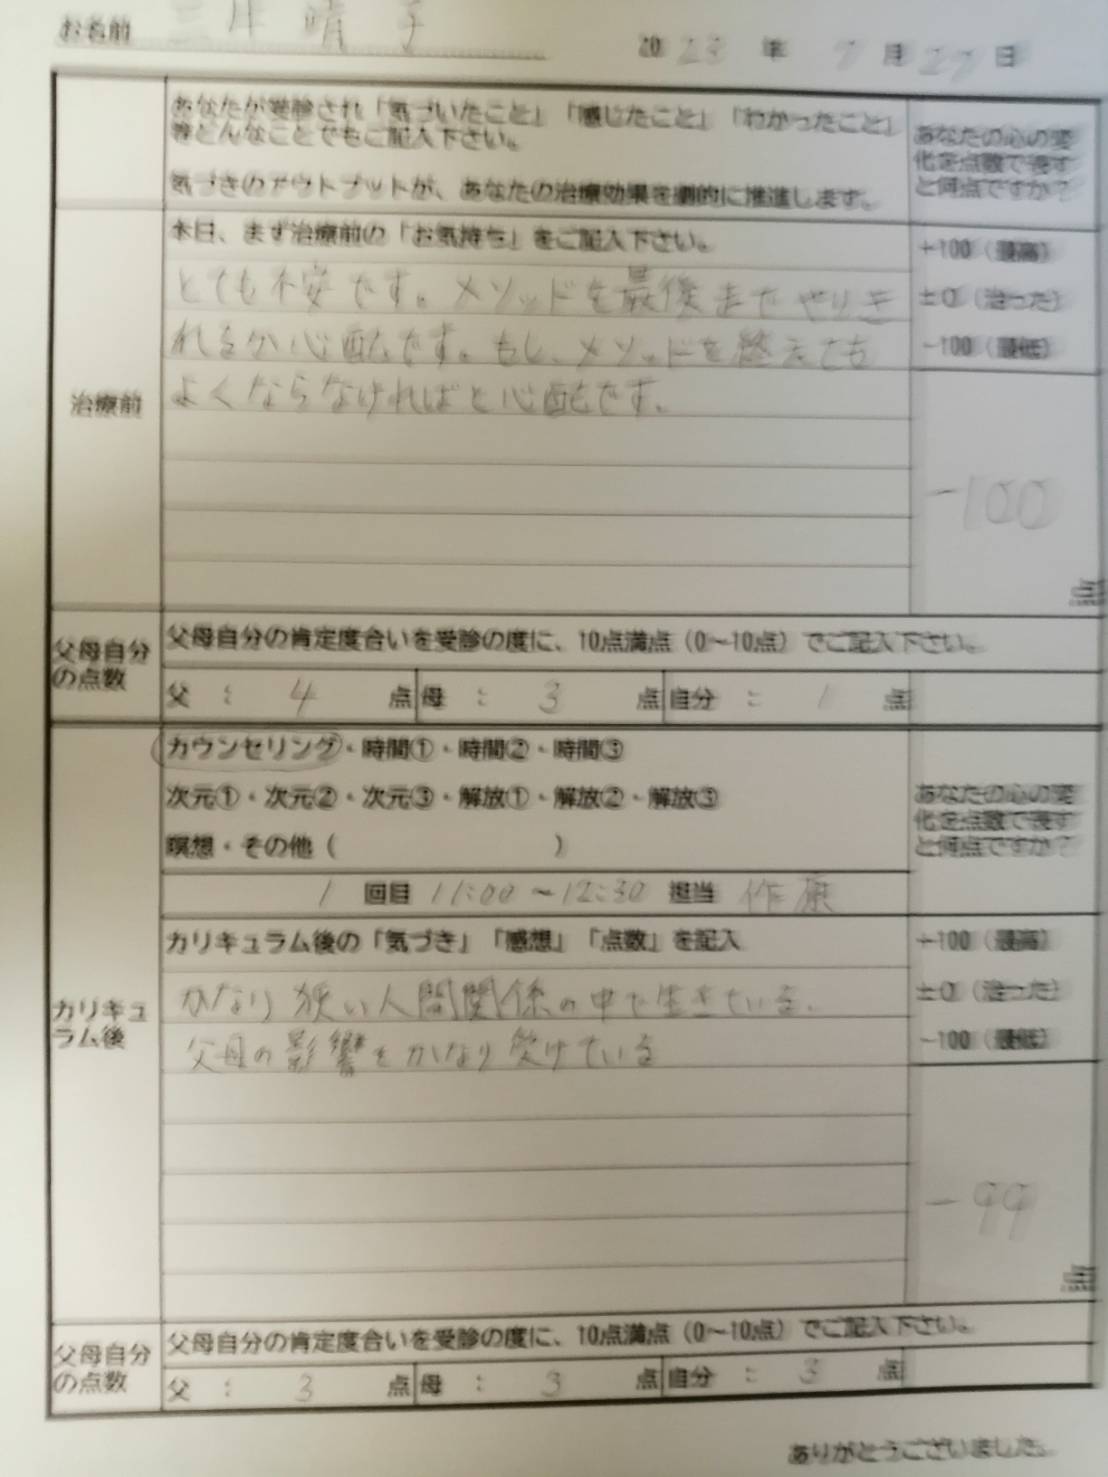 お名前 三井晴子
2023年 9月27日
あなたが受診され「気づいたこと」「感じたこと」「わかったこと」
等どんなことでもご記入下さい。
気づきのアウトプットが、あなたの治療効果を劇的に推進します。
あなたの心の変
化を点数で表す
と何点ですか?
治療前
本日、まず治療前の「お気持ち」をご記入下さい。
とても不安です。メソッドを最後までやりき
れるか心配です。もし、メソッドを終えても
よくならなければと心配です。
+100(最高)
±0(治った)
-100(最低)
-100
点
父母自分
の点数
父母自分の肯定度合いを受診の度に、10点満点(0~10点)でご記入下さい。
父 : 4 点 母 : 3 点 自分 : 1 点
カウンセリング・時間①・時間②・時間③
次元①・次元②・次元③・解放①・解放②・解放③
瞑想・その他( )
あなたの心の変
化を点数で表す
と何点ですか?
1 回目 11:00~12:30 担当 作原
カリキュ
ラム後
カリキュラム後の「気づき」「感想」「点数」を記入
かなり狭い人間関係の中で生きている.
父母の影響をかなり受けている
+100(最高)
±0(治った)
-100(最低)
-99
点
父母自分
の点数
父母自分の肯定度合いを受診の度に、10点満点(0~10点)でご記入下さい。
父 : 3 点 母 : 3 点 自分 : 3 点
ありがとうございました。